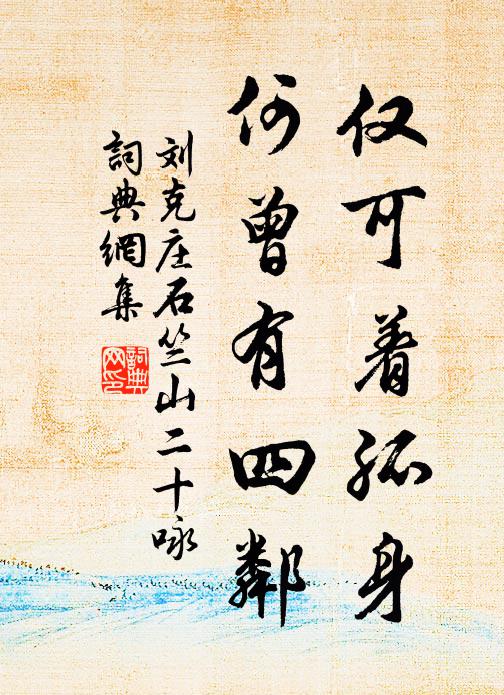 仅可着孤身
何曾有四鄰
刘克庄石竺山二十咏
詞典網集
詞典
网印